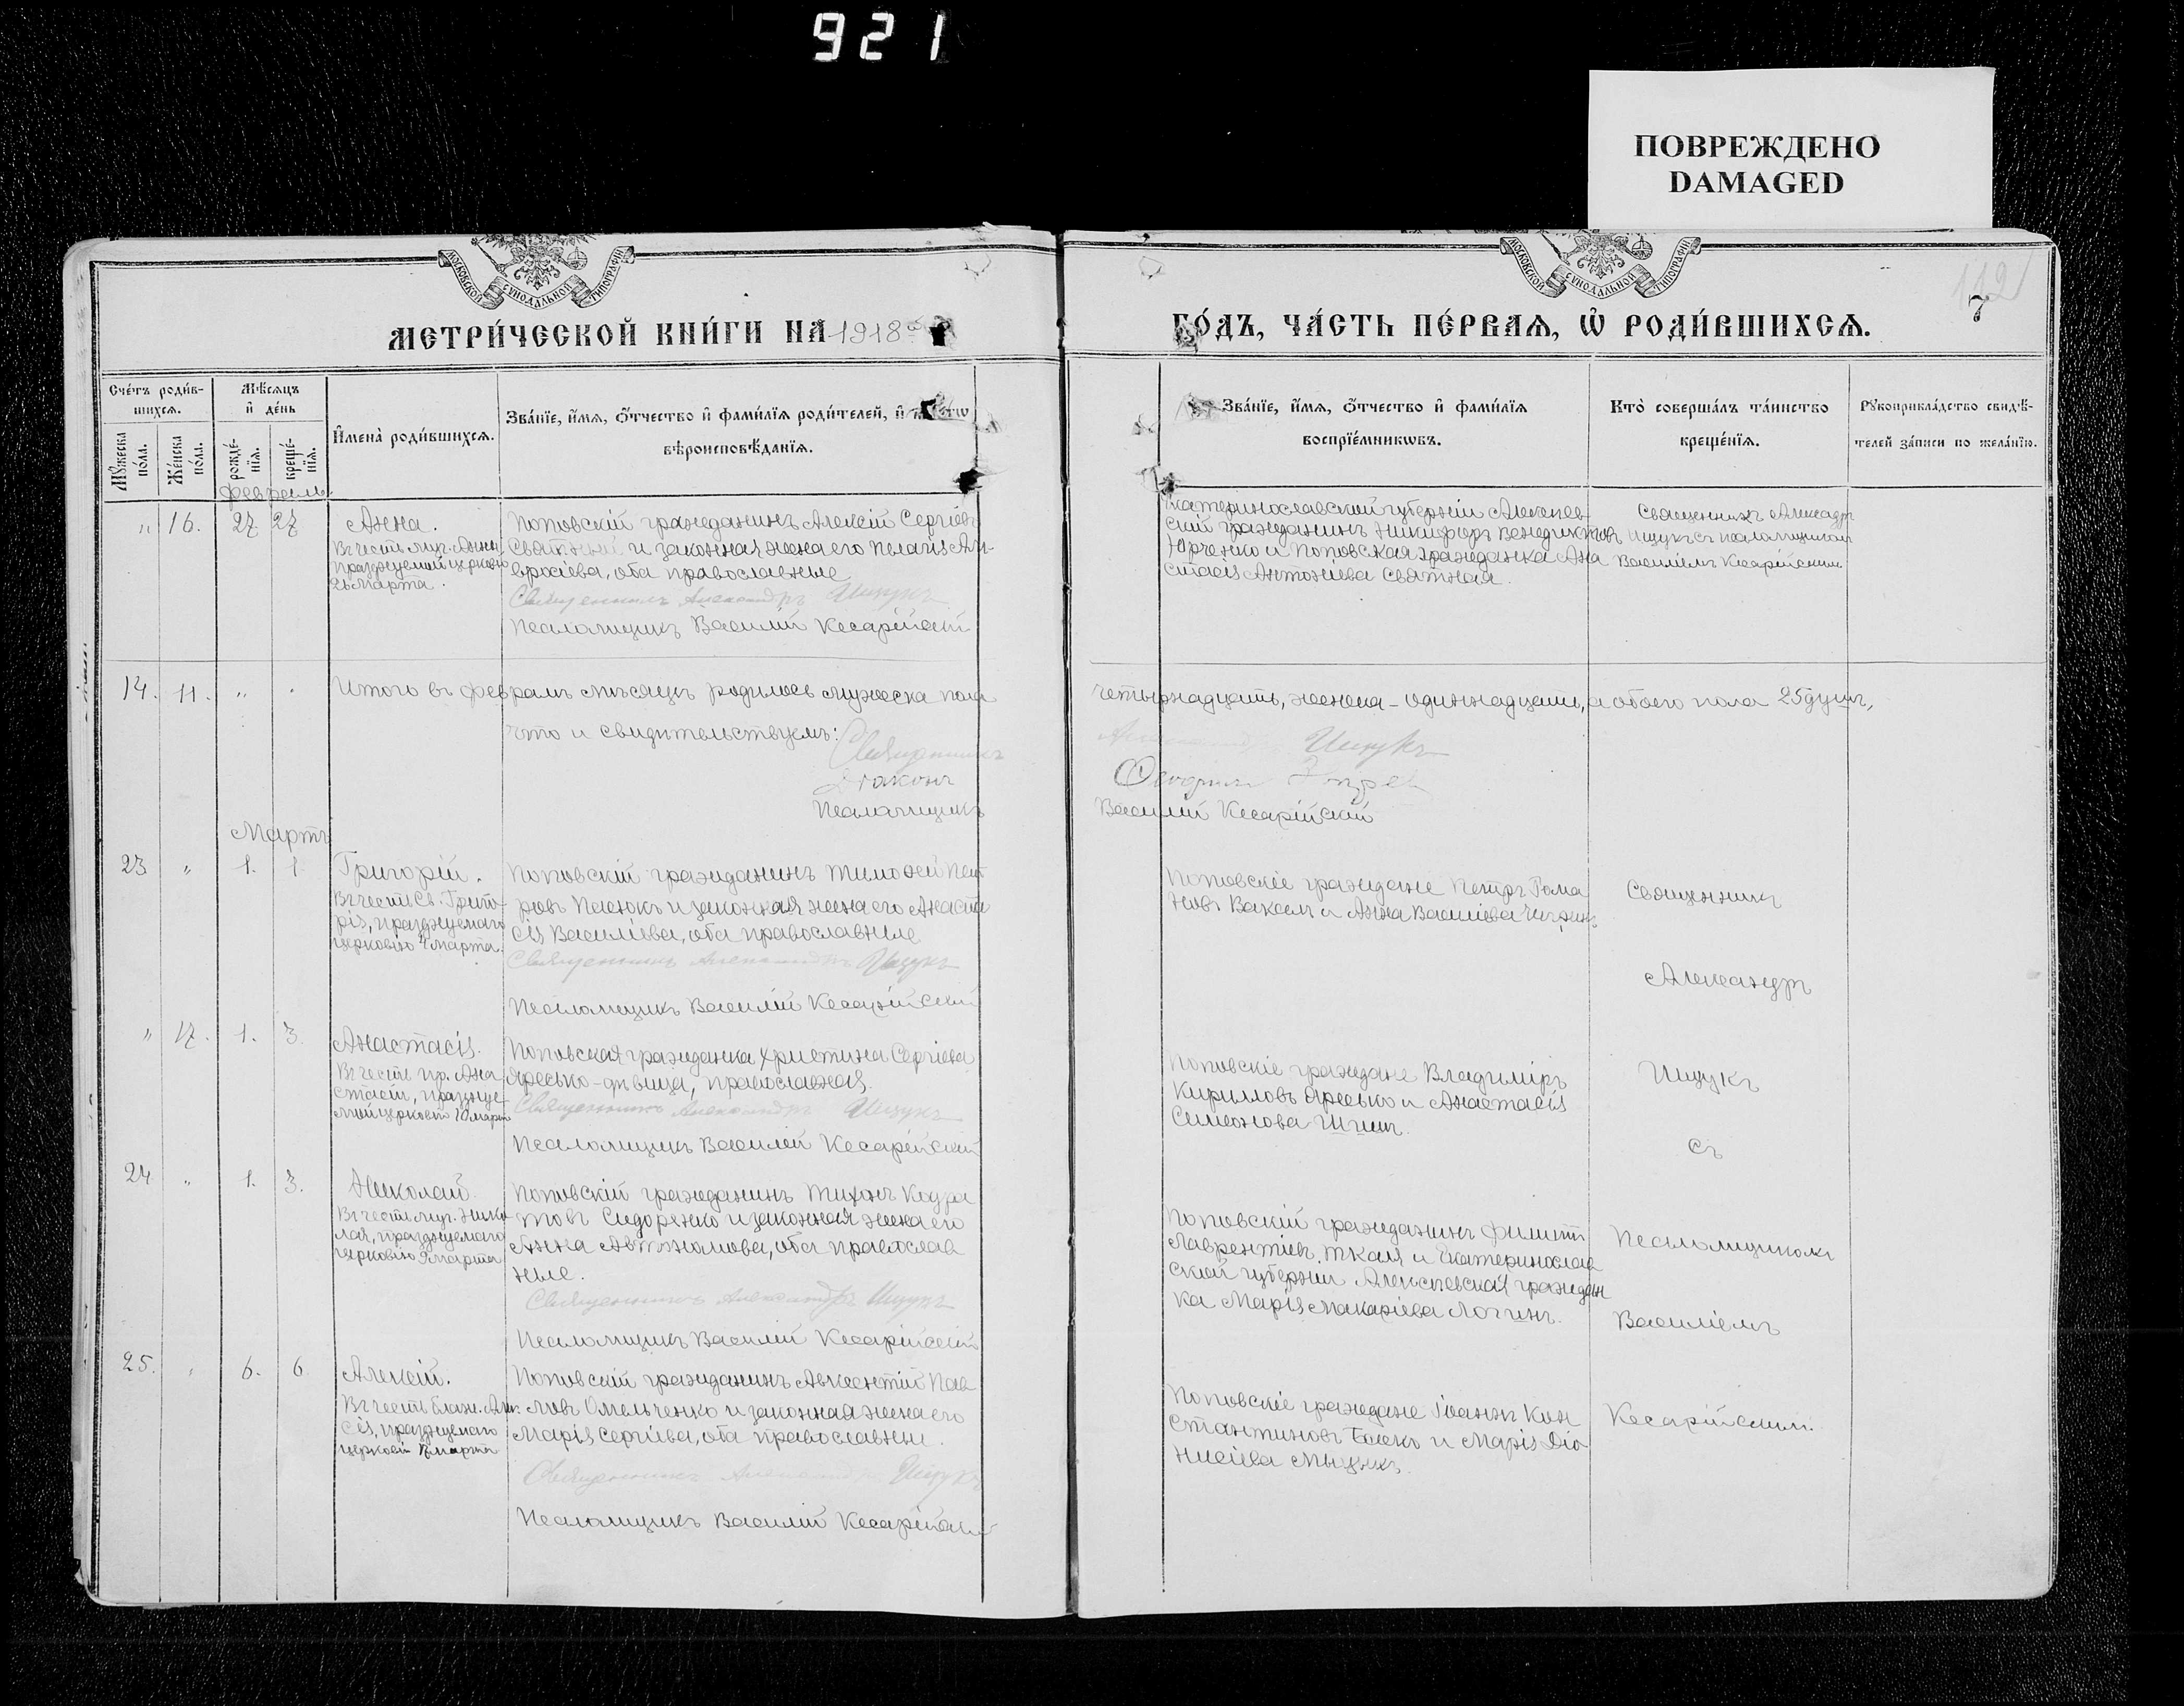 921
ПОВРЕЖДЕНО
DAMAGED
МОСКОВСКОЙ СѴНОДАЛЬНОЙ ТИПОГРАФІИ
МОСКОВСКОЙ СѴНОДАЛЬНОЙ ТИПОГРАФІИ
112
7
МЕТРИ́ЧЕСКОЙ КНИ́ГИ НА 1918
ГО́ДЪ, ЧА́СТЬ ПЕ́РВАЯ, Ѡ РОДИ́ВШИХСЯ.
Сче́тъ роди́в-
шихся.
Му́жеска по́ла.
Же́нска по́ла.
Мѣ́сяцъ
и де́нь
рожде́-
нїя.
креще́-
нїя.
Имена̀ роди́вшихся.
Зва́нїе, и́мя, о́тчество и фами́лїя роди́телей, и
вѣроисповѣ́данїя.
Зва́нїе, и́мя, о́тчество и фами́лїя
воспрїе́мниковъ.
Кто̀ соверша́лъ та́инство
креще́нїя.
Рукоприкла́дство свидѣ́-
телей за́писи по жела́нїю.
февраль.
" 16. 27 27 Анна.
Въ честь муч. Анны
празднуемой церковію
26 марта.
Поповскій гражданинъ Алексій Сергіевъ
Святный и законная жена его Пелагія Ам-
вросіева, оба православные
Священникъ Александръ Ищукъ
Псаломщикъ Василій Кесарійскій
Екатеринославской губерніи Алексеев-
скій гражданинъ Никифоръ Венедиктовъ
Юрченко и Поповская гражданка Ана
стасія Антоніева Святная.
Священникъ Александръ
Ищукъ съ псаломщикомъ
Василіемъ Кесарійскимъ
14. 11. " "
Итого въ февралѣ мѣсяцѣ родилось мужеска пола
четырнадцать, женска - одиннадцать, а обоего пола 25 душъ,
что и свидѣтельствуемъ:
Священникъ Александръ Ищукъ
Діаконъ
Псаломщикъ Василій Кесарійскій
Мартъ
23 " 1. 1. Григорій.
Въ честь Св. Григо-
рія, празднуемаго
церковію 4 марта.
Поповскій гражданинъ Тимоѳей Пет
ровъ Пасюкъ и законная жена его Анаста
сія Василіева, оба православные
Священникъ Александръ Ищукъ
Псаломщикъ Василій Кесарійскій
Поповскіе граждане Петръ Рома
новъ Вакалъ и Анна Василіева
Священникъ
Александръ
" 17. 1. 3. Анастасія.
Въ честь пр. Ана
стасіи, праздуе-
мой церковію 10 марта
Поповская гражданка Христина Сергіева
Яресько-дѣвица, православная.
Священникъ Александръ Ищукъ
Псаломщикъ Василій Кесарійскій
Поповскіе граждане Владиміръ
Кирилловъ Яресько и Анастасія
Симеонова
Ищукъ
съ
24 " 1. 3. Николай.
Въ честь муч. Нико
лая, празднуемаго
церковію 9 марта
Поповскій гражданинъ Тихонъ Кодра
товъ Сидоренко и законная жена его
Анна Автономова, оба православ
ные.
Священникъ Александръ Ищукъ
Псаломщикъ Василій Кесарійскій
Поповскій гражданинъ Филиппъ
Лаврентіевъ Ткаля и Екатеринослав
ской губерніи Алексѣевская граждан
ка Марія Макаріева Логинъ.
Псаломщикомъ
Василіемъ
25. " 6. 6. Алексій.
Въ честь блаж. Алек-
сія, празднуемаго
церковію 17 марта
Поповскій гражданинъ Авксентій Пав
ловъ Омельченко и законная жена его
Марія Сергіева, оба православные.
Священникъ Александръ Ищукъ
Псаломщикъ Василій Кесарійскій
Поповскіе граждане Іоаннъ Кон
стантиновъ Башко и Марія Діо
нисіева Мыцыкъ.
Кесарійскимъ.